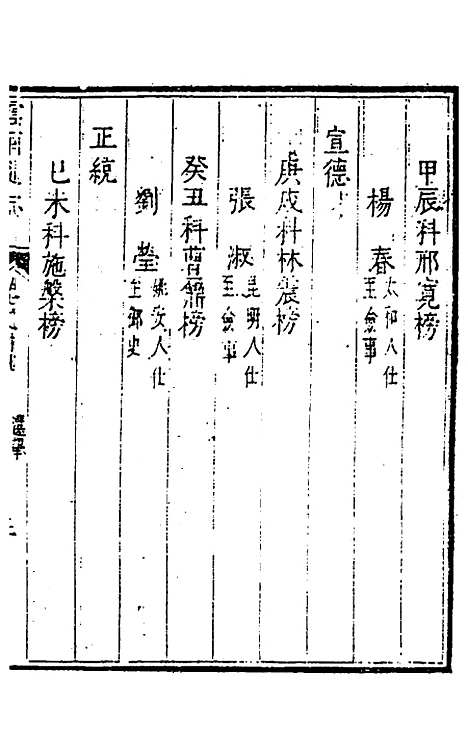 甲辰科邢寬榜
楊春 太和人仕至僉事
宣德
庚戌科林震榜
張淑 昆明人仕至僉事
癸丑科曹鼐榜
劉瑩 姚安人仕至御史
正統
己未科施槃榜
雲南通志
選舉